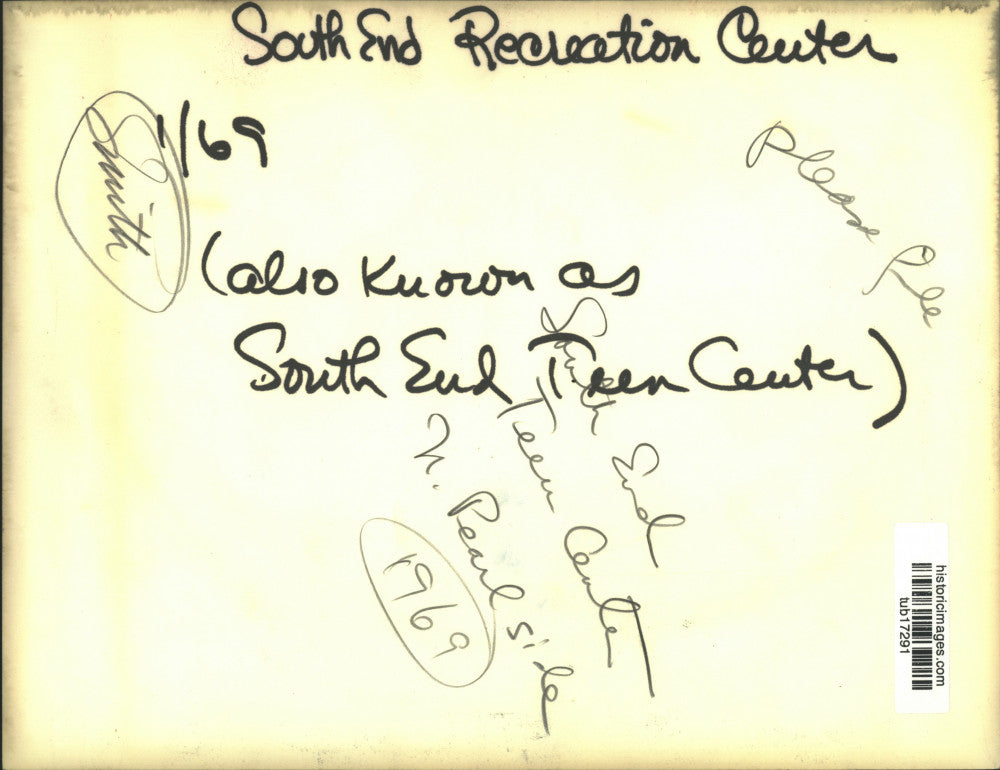 South End Recreation Center
1/69
Smith
Please
(also known as
South End Teen Center)
South End
Teen Center
N. Pearl side
1969
historicimages.com
tub17291